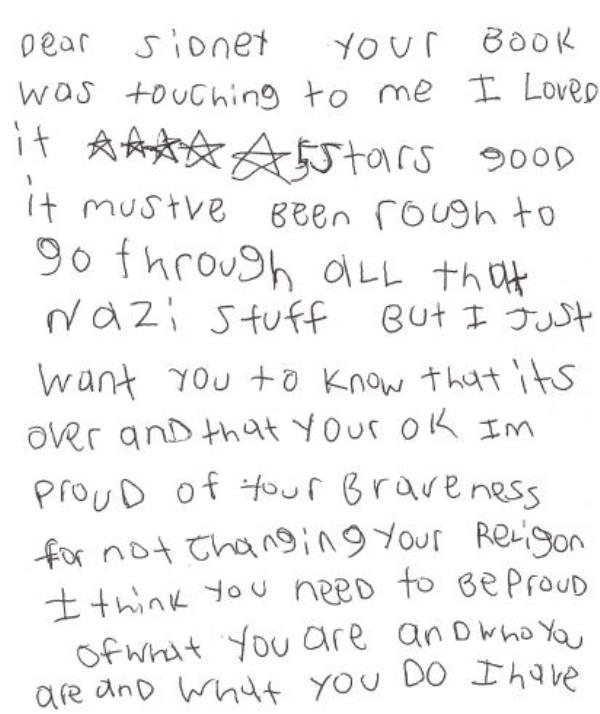 Dear Sidnet your BOOK
was touching to me I Loved
it ☆☆☆☆☆ 5 Stars gooD
it mustve Been rough to
go through aLL that
Nazi stuff But I Just
want you to know that its
over anD that your oK Im
prouD of your Braveness
for not changing your Religon
I think you neeD to Be ProuD
of what you are anD who You
are anD what you Do I have